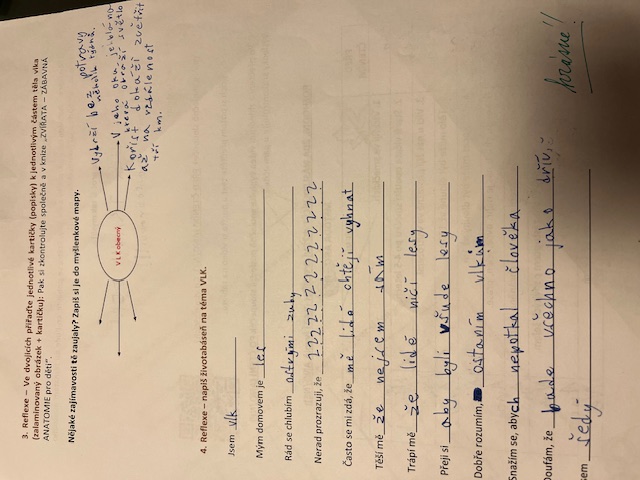 3. Reflexe – Ve dvojicích přiřaďte jednotlivé kartičky (popisky) k jednotlivým částem těla vlka
(zalaminovaný obrázek + kartičku): Pak si zkontrolujte společně a v knize „ZVÍŘATA – ZÁBAVNÁ
ANATOMIE pro děti".
Nějaké zajímavosti tě zaujaly? Zapiš si je do myšlenkové mapy.
Vlk obecný
vybrží bez potravy
několik týdnů.
V jeho oku je blána
která obráží světlo
Kořist dokáží zvětřit
až na vzdálenost
tří km.
4. Reflexe – napiš životabáseň na téma VLK.
Jsem vlk
Mým domovem je les
Rád se chlubím ostrými zuby
Nerad prozrazuji, že ???????????
Často se mi zdá, že mě lidé chtějí vyhnat
Těší mě že nejsem sám
Trápí mě že lidé ničí lesy
Přeji si aby byli všude lesy
Dobře rozumím, ostaním vlkům
Snažím se, abych nepotkal člověka
Doufám, že bude všechno jako dřív,
Jsem šedý
krásné!!